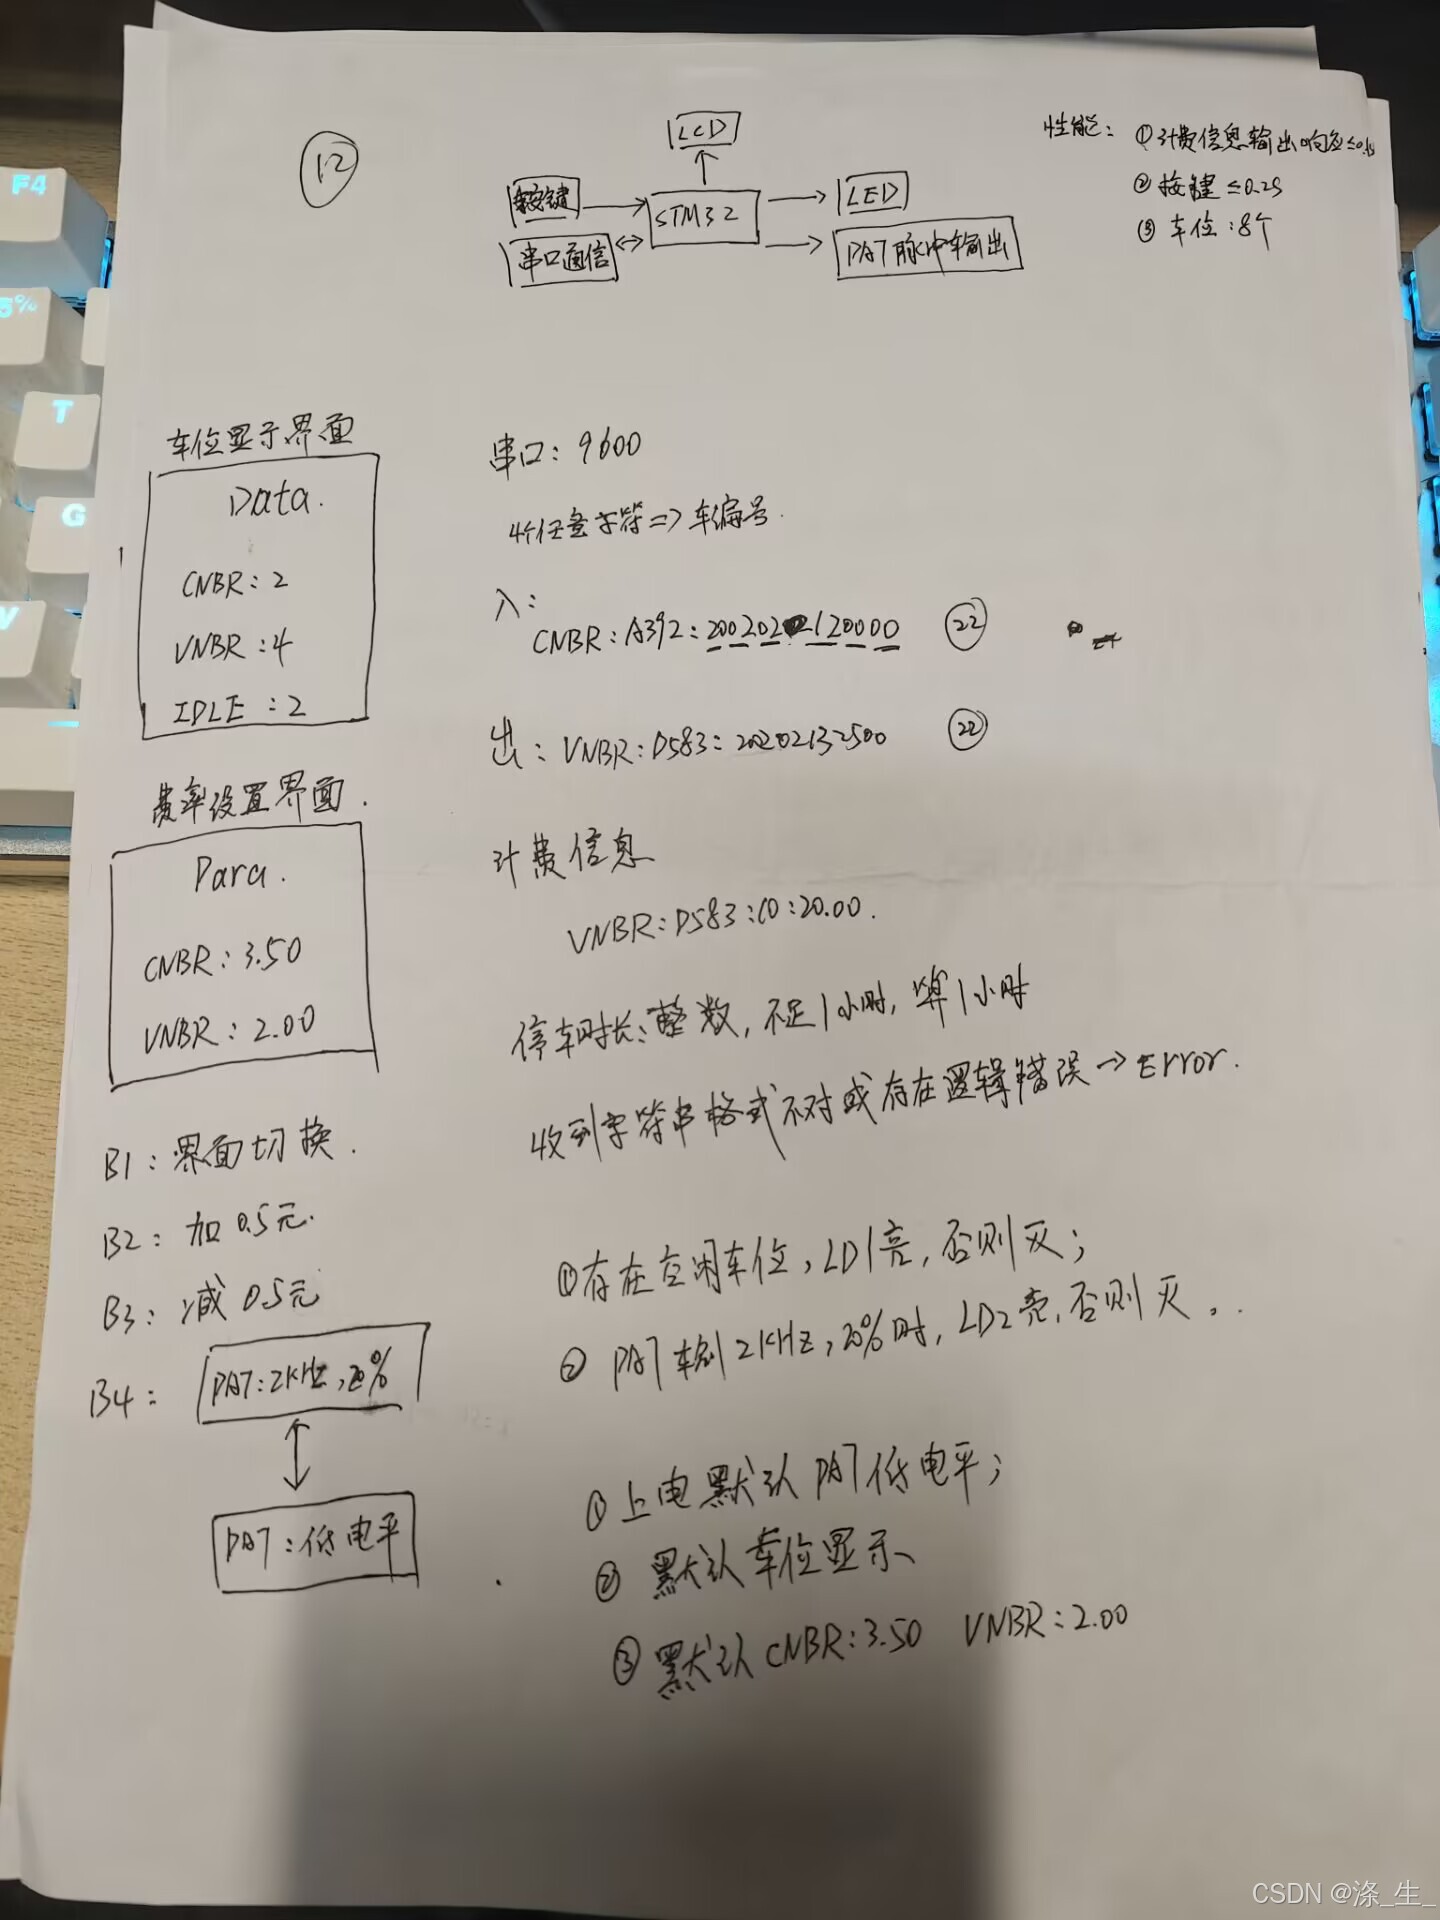 12
LCD
按键
STM32
LED
串口通信
PA7脉冲输出
性能：
①计费信息输出响应≤0.1s
②按键≤0.2s
③车位：8个
车位显示界面
Data.
CNBR：2
VNBR：4
IDLE：2
费率设置界面.
Para.
CNBR：3.50
VNBR：2.00
B1：界面切换.
B2：加0.5元.
B3：减0.5元
B4：
PA7：2KHz，20%
PA7：低电平
串口：9600
4个任意字符=>车编号.
入：
CNBR：A392：200202120000
22
出：VNBR：D583：202002132500
22
计费信息
VNBR：D583：10：20.00.
停车时长：整数，不足1小时，算1小时
收到字符串格式不对或存在逻辑错误→Error.
①存在空闲车位，LD1亮，否则灭；
②PA7输出2KHz，20%时，LD2亮，否则灭。
①上电默认PA7低电平；
②默认车位显示
③默认CNBR：3.50 VNBR：2.00
F4
5%
T
G
V
CSDN @涤_生_